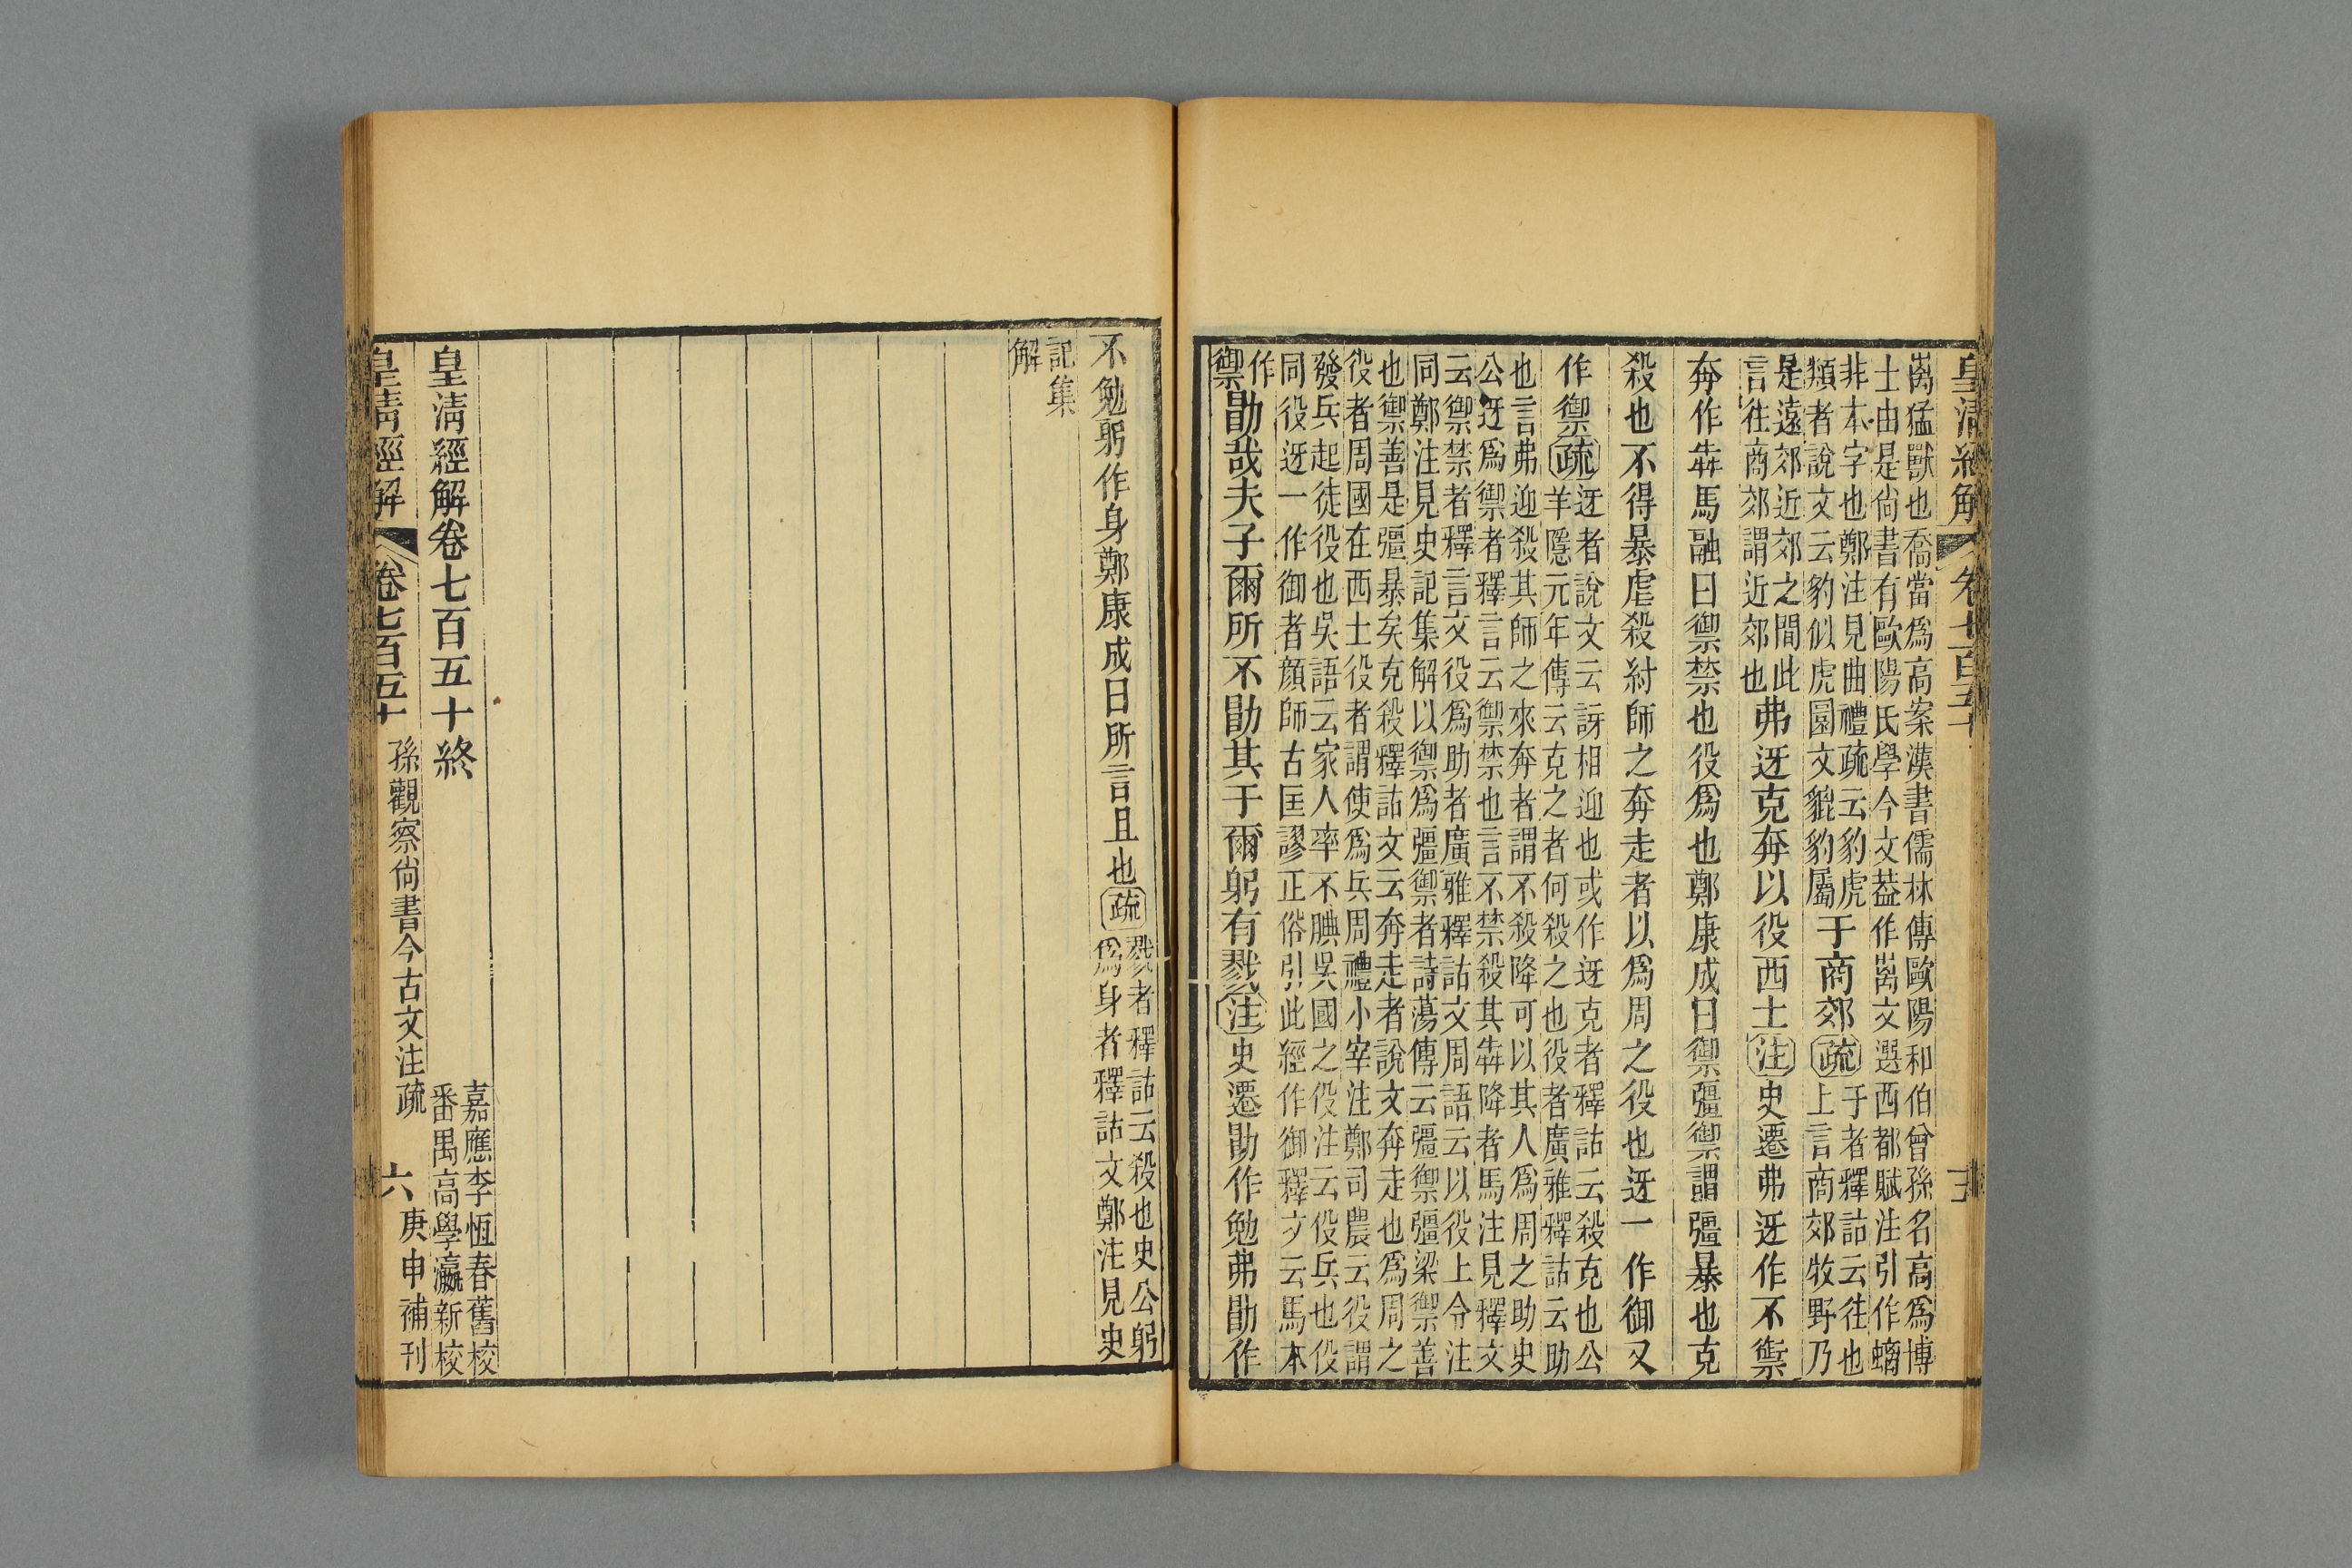 皇清經解 卷七百五十
离猛獸也喬當爲高案漢書儒林傳歐陽和伯曾孫名高爲博
士由是尙書有歐陽氏學今文葢作离文選西都賦注引作螭
非本字也鄭注見曲禮疏云豹虎
類者說文云豹似虎圜文貔豹屬
于商郊疏
于者釋詁云往也
上言商郊牧野乃
是遠郊近郊之間此
言往商郊謂近郊也
弗迓克奔以役西土注史遷弗迓作不禦
奔作犇馬融曰禦禁也役爲也鄭康成曰禦彊禦謂彊暴也克
殺也不得暴虐殺紂師之奔走者以爲周之役也迓一作御又
作禦疏
迓者說文云訝相迎也或作迓克者釋詁云殺克也公
羊隱元年傳云克之者何殺之也役者廣雅釋詁云助
也言弗迎殺其師之來奔者謂不殺降可以其人爲周之助史
公迓爲禦者釋言云禦禁也言不禁殺其犇降者馬注見釋文
云禦禁者釋言文役爲助者廣雅釋詁文周語云以役上令注
同鄭注見史記集解以禦爲彊禦者詩蕩傳云彊禦彊梁禦善
也禦善是彊暴矣克殺釋詁文云奔走者說文奔走也爲周之
役者周國在西土役者謂使爲兵周禮小宰注鄭司農云役謂
發兵起徒役也吳語云家人率不腆吳國之役注云役兵也役
同役迓一作御者顏師古匡謬正俗引此經作御釋文云馬本
作
禦
勖哉夫子爾所不勖其于爾躬有戮注史遷勖作勉弗勖作
不勉躬作身鄭康成曰所言且也疏
戮者釋詁云殺也史公躬
爲身者釋詁文鄭注見史
記集
解
皇清經解卷七百五十終
嘉應李恆春舊校
番禺高學瀛新校
皇清經解 卷七百五十 孫觀察尙書今古文注疏 六 庚申補刊